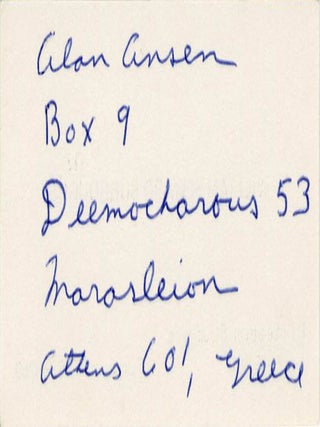 Alan Ansen
Box 9
Deemocharous 53
Marasleion
Athens 601, Greece